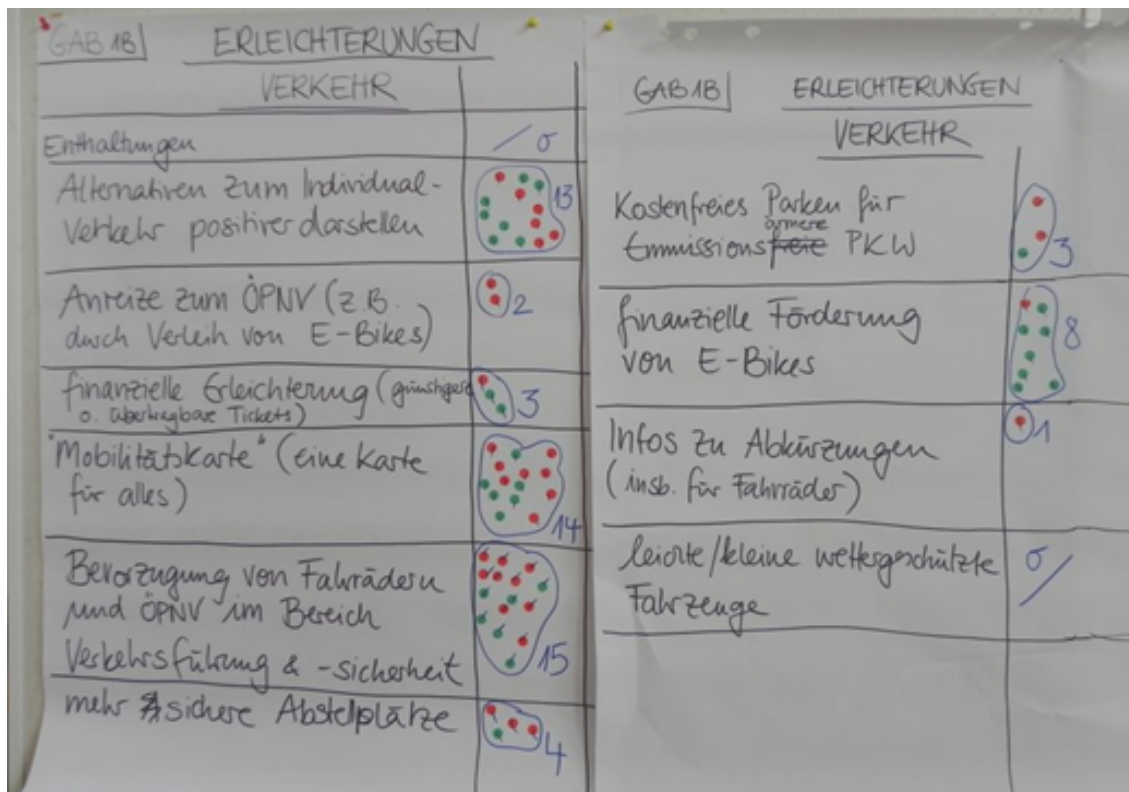 GAB 1B ERLEICHTERUNGEN
VERKEHR
Enthaltungen / 0
Alternativen zum Individual- 13
verkehr positiver darstellen
Anreize zum ÖPNV (z.B. 2
durch Verleih von E-Bikes)
finanzielle Erleichterung (günstigere 3
o. übertragbare Tickets)
"Mobilitätskarte" (eine Karte
für alles) 14
Bevorzugung von Fahrrädern
und ÖPNV im Bereich
Verkehrsführung & -sicherheit 15
mehr sichere Abstellplätze 4
GAB 1B ERLEICHTERUNGEN
VERKEHR
Kostenfreies Parken für
ärmere
Emmissionsfreie PKW 3
finanzielle Förderung 8
von E-Bikes
Infos zu Abkürzungen 1
(insb. für Fahrräder)
leichte/kleine wettergeschützte 0 /
Fahrzeuge